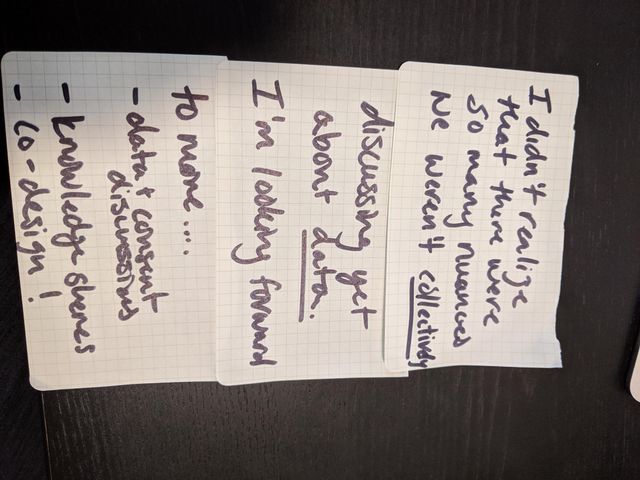 I didn't realize
that there were
so many nuances
we weren't collectively
discussing yet
about data.
I'm looking forward
to more....
- data + consent
discussions
- knowledge shares
- co-design!